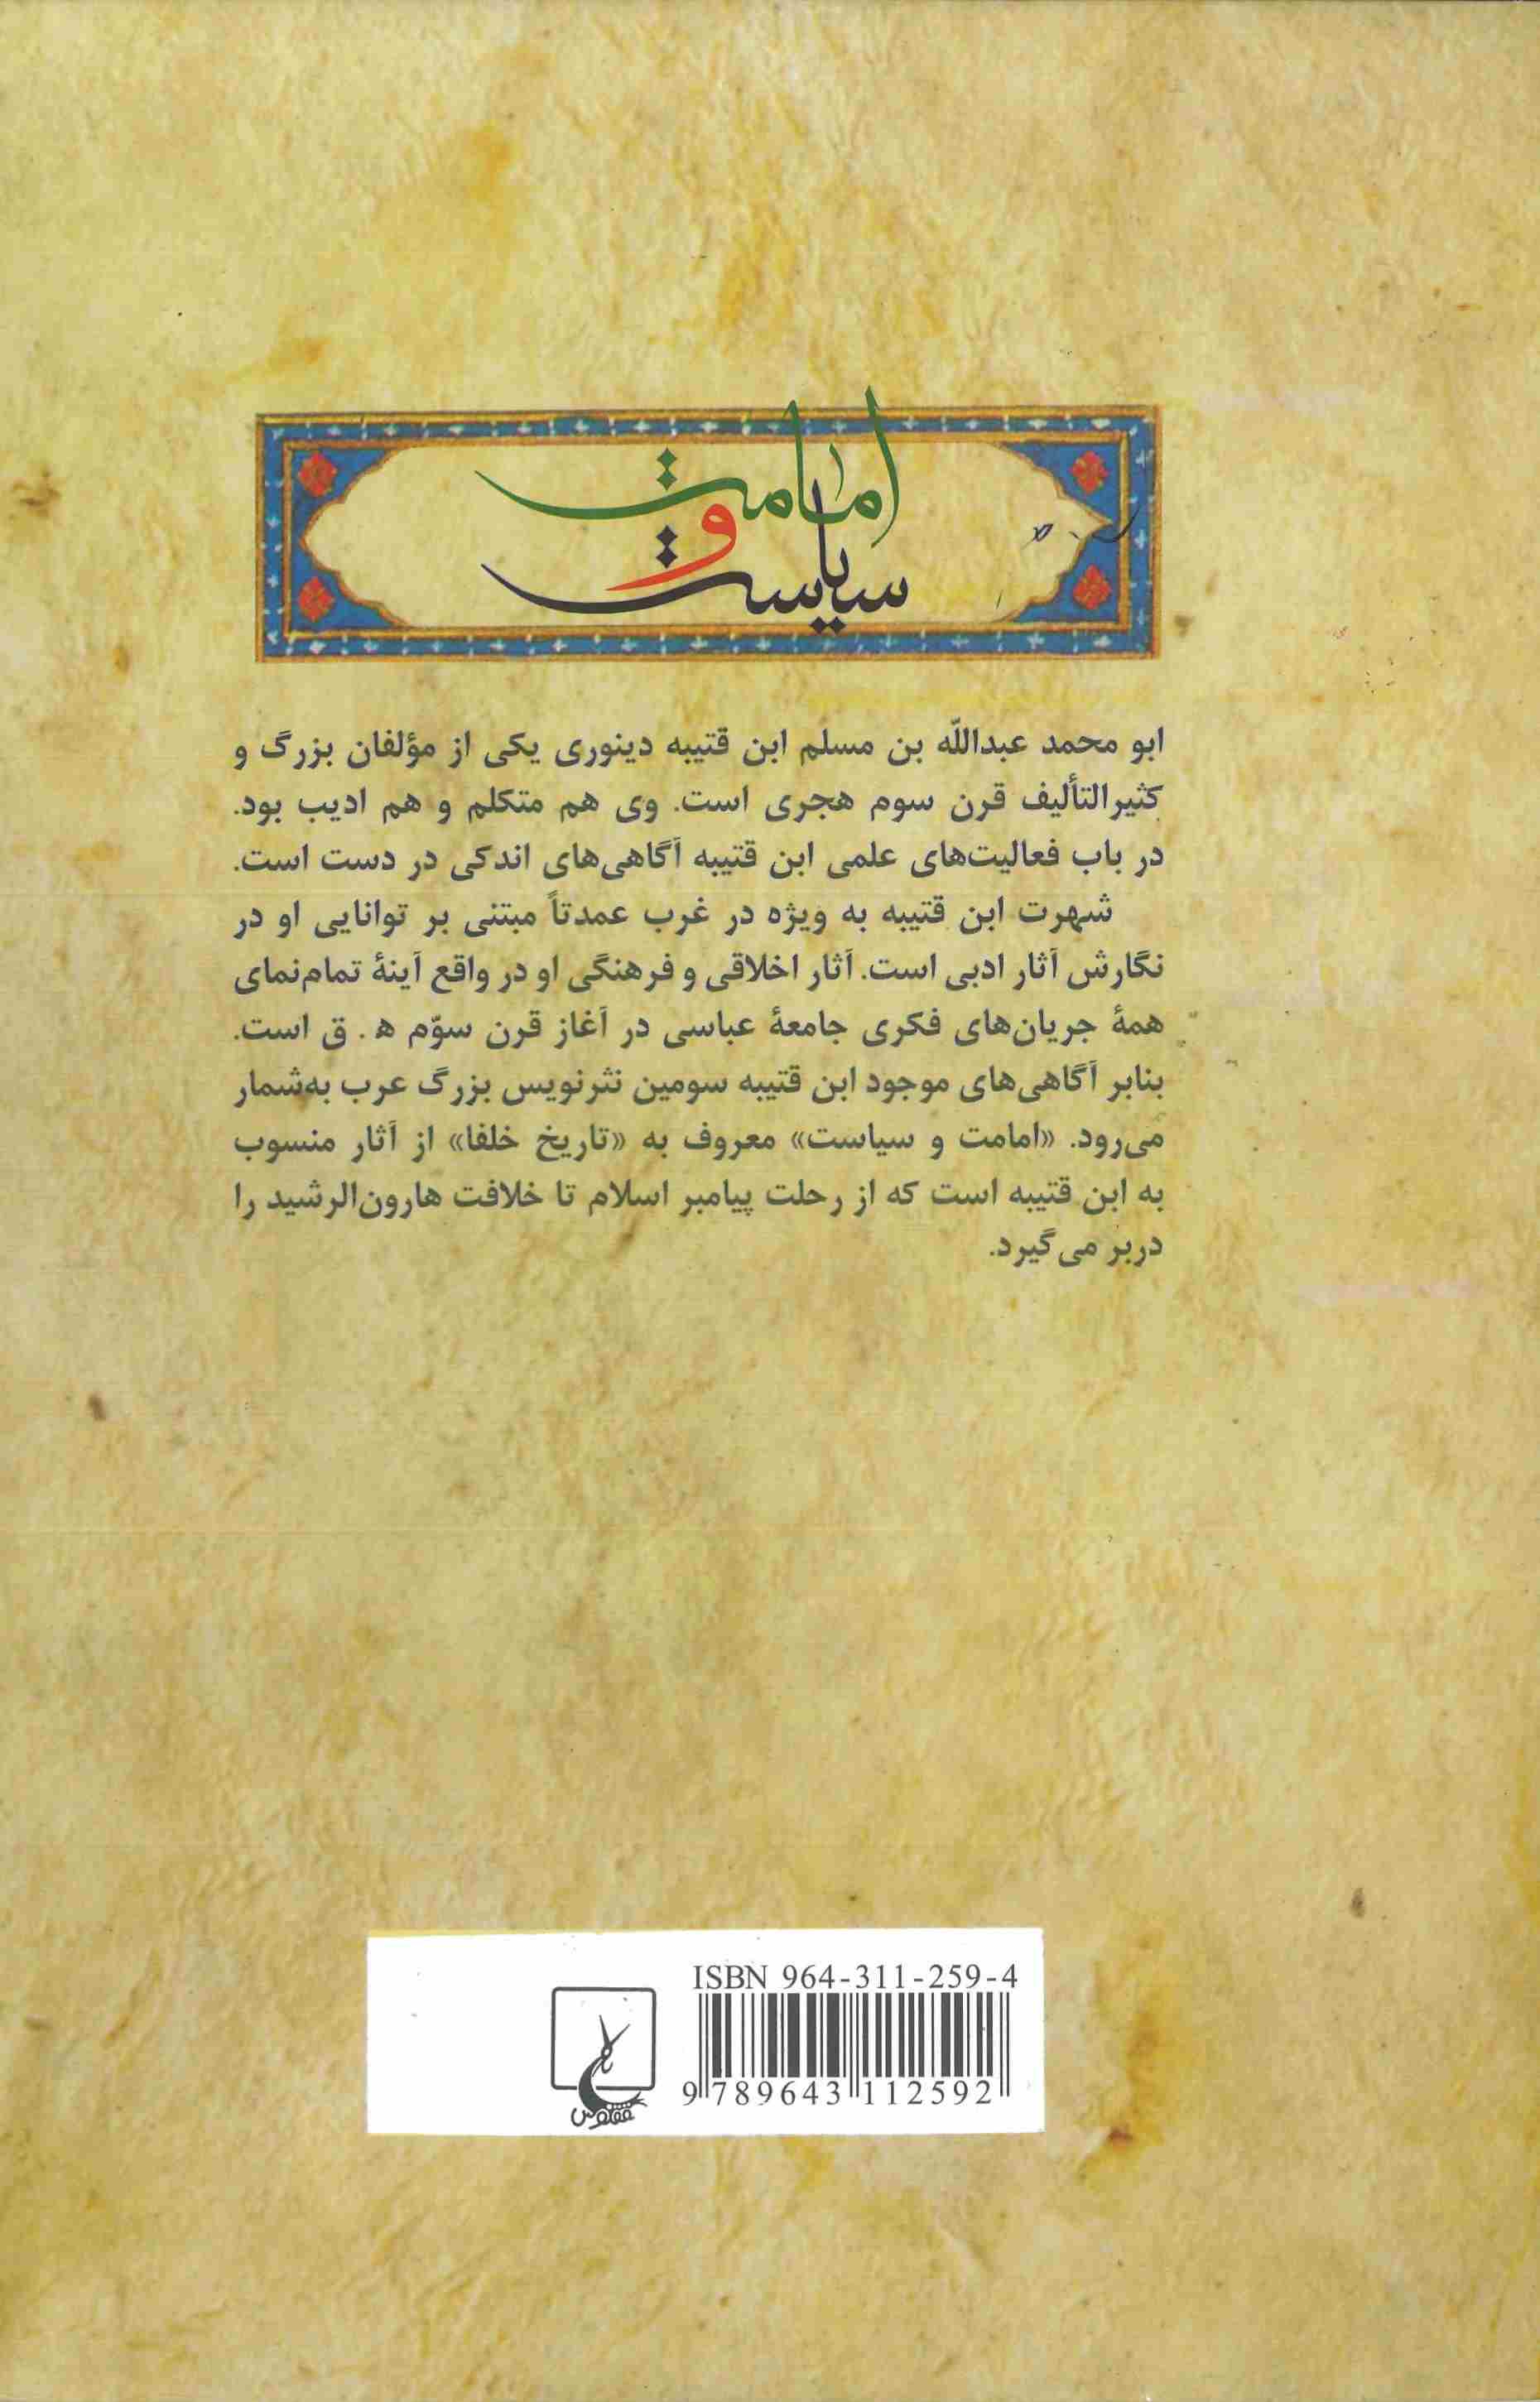 امامت
و
سیاست
ابو محمد عبداللّه بن مسلم ابن قتیبه دینوری یکی از مؤلفان بزرگ و
کثیرالتألیف قرن سوم هجری است. وی هم متکلم و هم ادیب بود.
در باب فعالیت‌های علمی ابن قتیبه آگاهی‌های اندکی در دست است.
شهرت ابن قتیبه به ویژه در غرب عمدتاً مبتنی بر توانایی او در
نگارش آثار ادبی است. آثار اخلاقی و فرهنگی او در واقع آینهٔ تمام‌نمای
همهٔ جریان‌های فکری جامعهٔ عباسی در آغاز قرن سوّم ه‍. ق است.
بنابر آگاهی‌های موجود ابن قتیبه سومین نثرنویس بزرگ عرب به‌شمار
می‌رود. «امامت و سیاست» معروف به «تاریخ خلفا» از آثار منسوب
به ابن قتیبه است که از رحلت پیامبر اسلام تا خلافت هارون‌الرشید را
دربر می‌گیرد.
ISBN 964-311-259-4
9 789643 112592
ققنوس